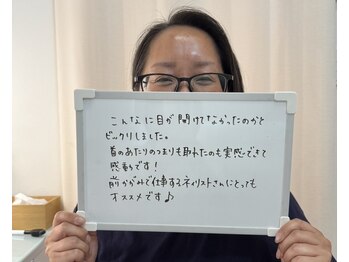 こんなに目が開けてなかったのかと
ビックリしました。
首のあたりのつまりも取れたのも実感できて
感動です！
前かがみで仕事するネイリストさんにとっても
オススメです♪